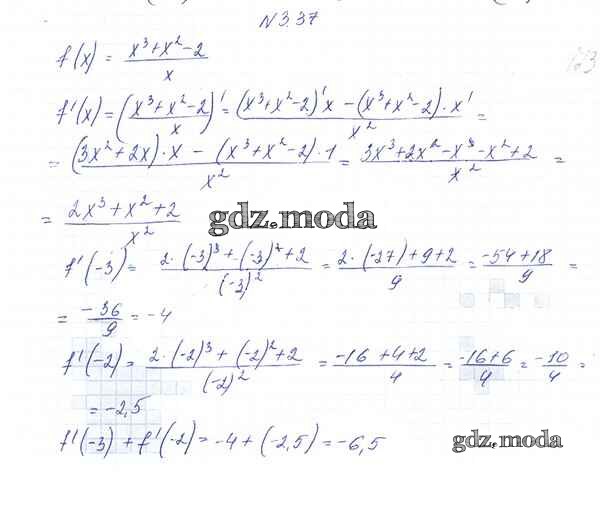 N 3.37
f(x) = (x³+x²-2)/x
123
f'(x) = ((x³+x²-2)/x)' = ((x³+x²-2)'x - (x³+x²-2)·x')/x² =
= ((3x²+2x)·x - (x³+x²-2)·1)/x² = (3x³+2x²-x³-x²+2)/x² =
= (2x³+x²+2)/x²
gdz.moda
f'(-3) = (2·(-3)³+(-3)²+2)/(-3)² = (2·(-27)+9+2)/9 = (-54+18)/9 =
= -36/9 = -4
f'(-2) = (2·(-2)³+(-2)²+2)/(-2)² = (-16+4+2)/4 = (-16+6)/4 = -10/4 =
= -2,5
f'(-3) + f'(-2) = -4+(-2,5) = -6,5
gdz.moda